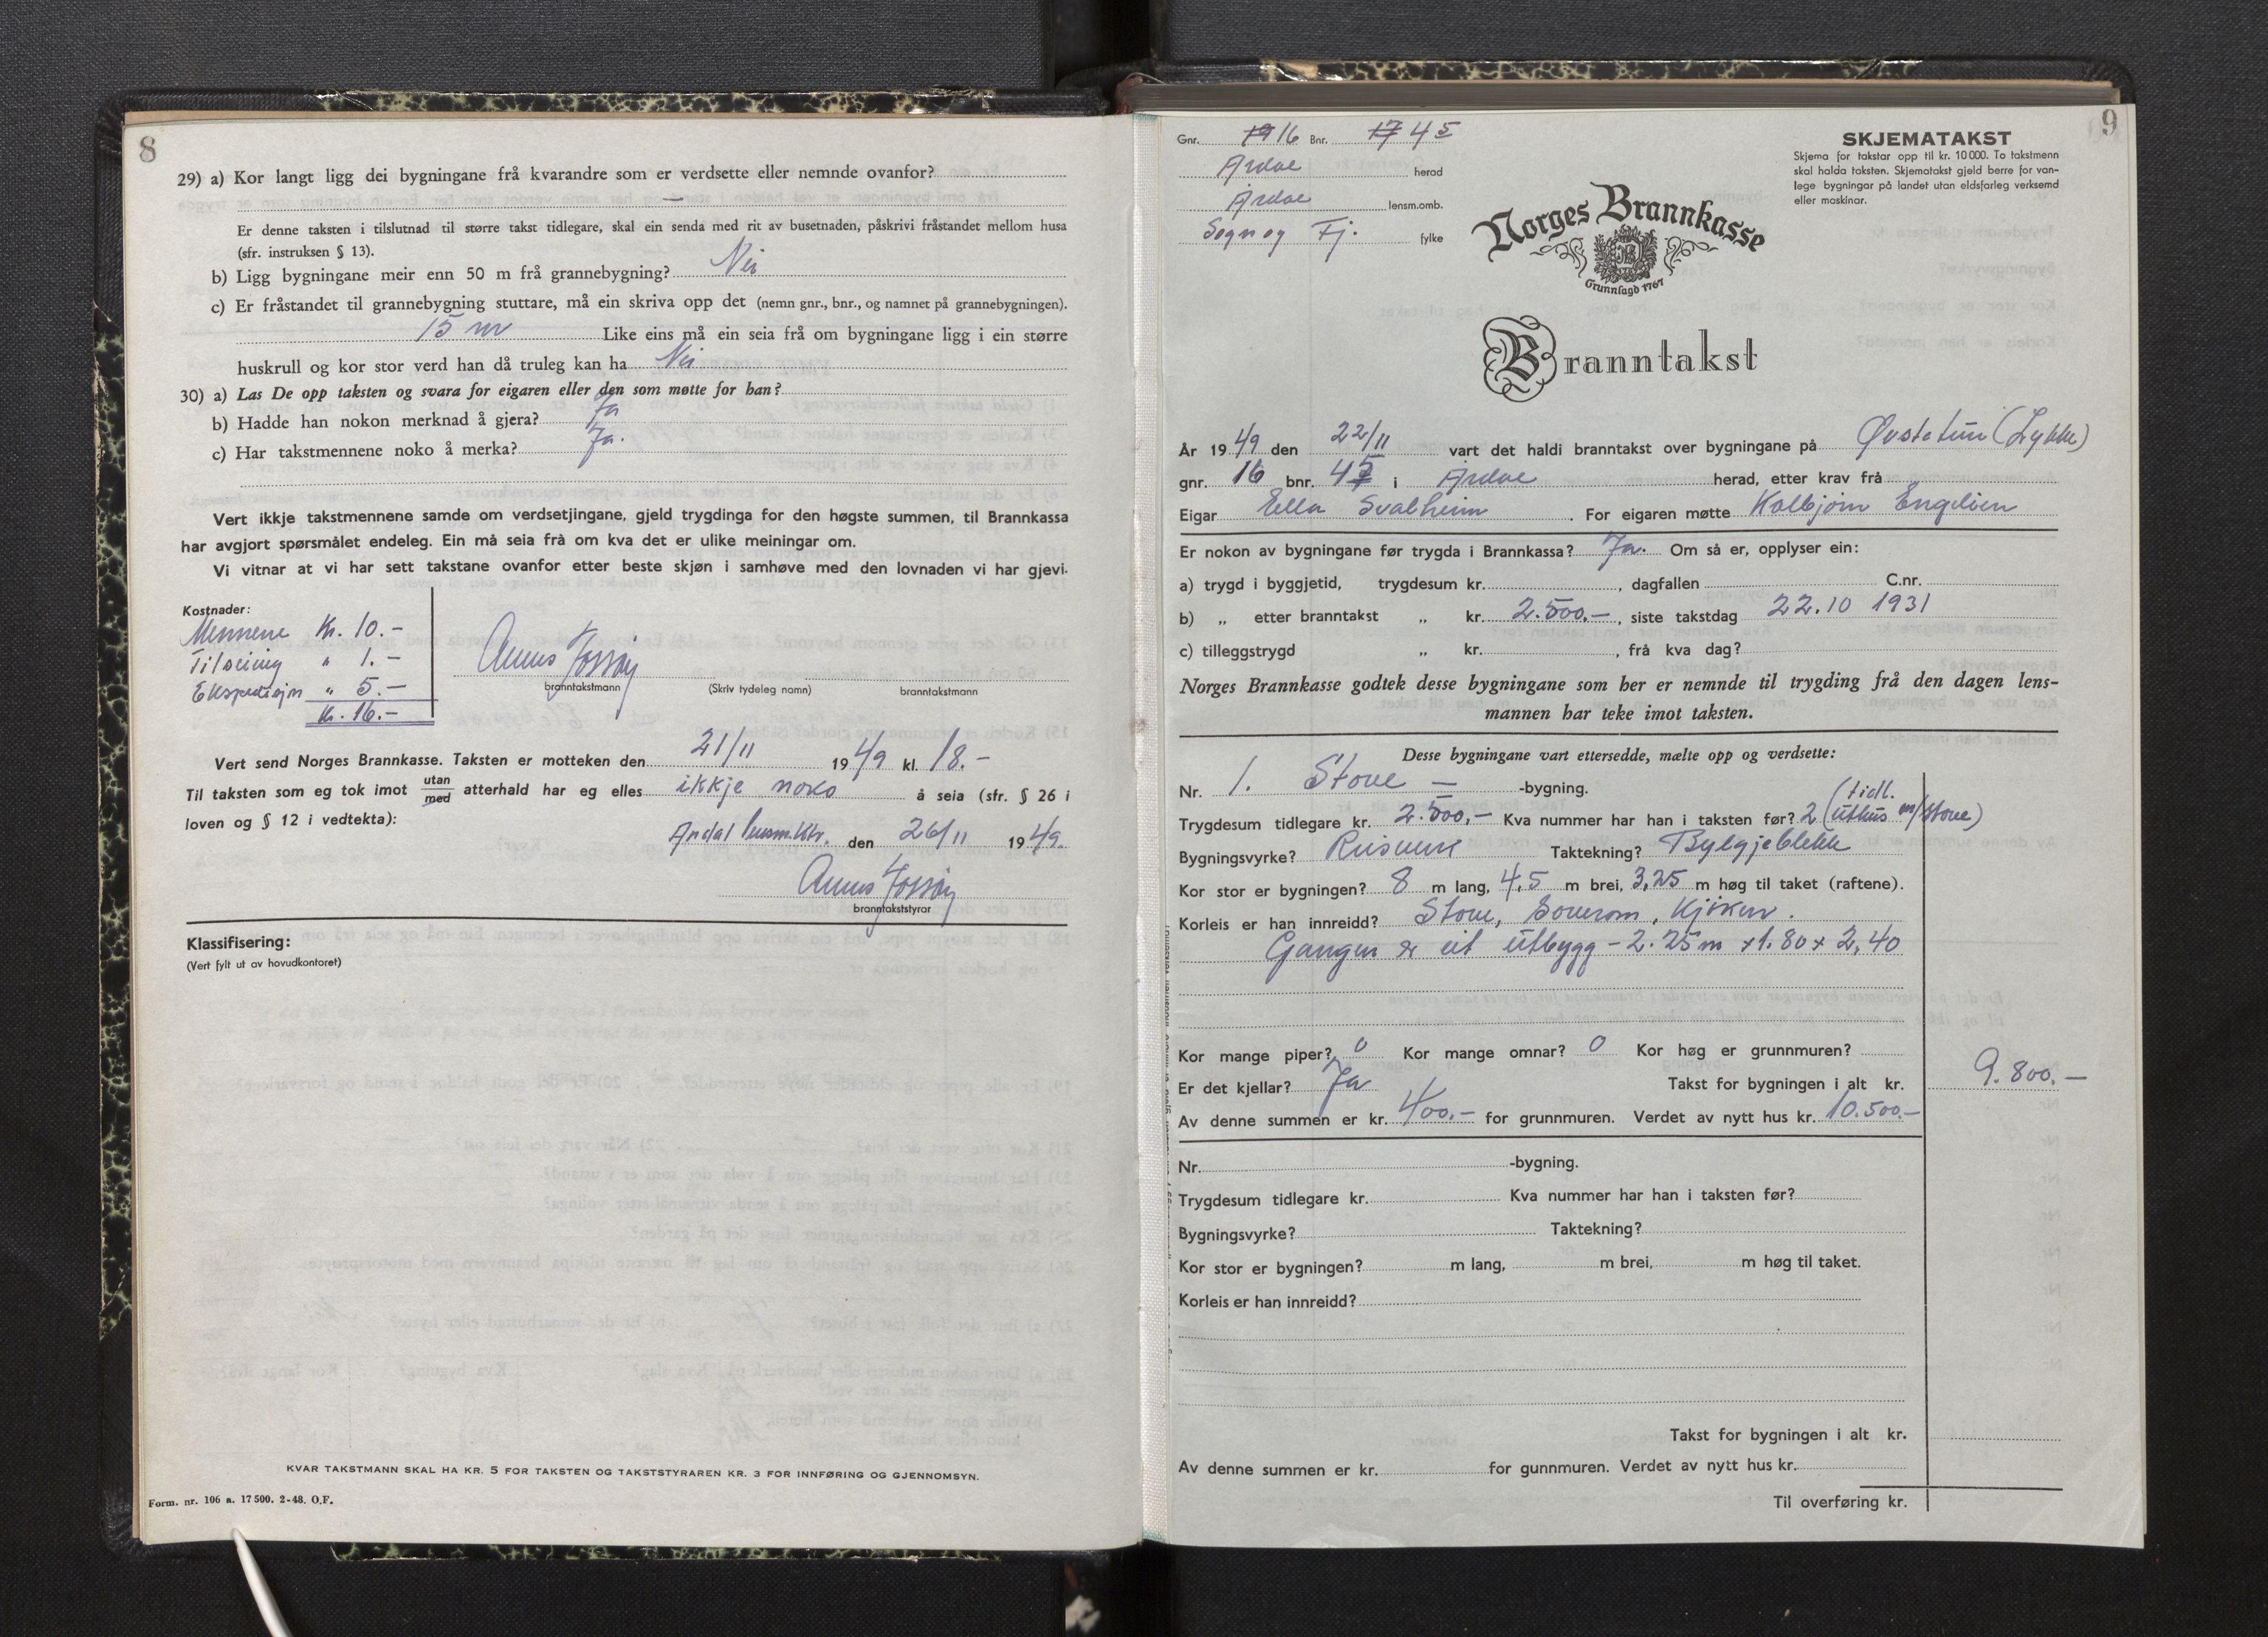 8
29) a) Kor langt ligg dei bygningane frå kvarandre som er verdsette eller nemnde ovanfor?
—
Er denne taksten i tilslutnad til større takst tidlegare, skal ein senda med rit av busetnaden, påskrivi fråstandet mellom husa
(sfr. instruksen § 13).
b) Ligg bygningane meir enn 50 m frå grannebygning? Nei
c) Er fråstandet til grannebygning stuttare, må ein skriva opp det (nemn gnr., bnr., og namnet på grannebygningen).
15 m Like eins må ein seia frå om bygningane ligg i ein større
huskrull og kor stor verd han då truleg kan ha Nei
30) a) Las De opp taksten og svara for eigaren eller den som møtte for han?
b) Hadde han nokon merknad å gjera? Ja
c) Har takstmennene noko å merka? Ja.
Vert ikkje takstmennene samde om verdsetjingane, gjeld trygdinga for den høgste summen, til Brannkassa
har avgjort spørsmålet endeleg. Ein må seia frå om kva det er ulike meiningar om.
Vi vitnar at vi har sett takstane ovanfor etter beste skjøn i samhøve med den lovnaden vi har gjevi.
Kostnader:
Mennene Kr. 10.-
Tilseing " 1.-
Ekspedisjon " 5.-
Kr. 16.-
branntakstmann (Skriv tydeleg namn) branntakstmann
Vert send Norges Brannkasse. Taksten er motteken den 21/11 1949 kl. 18.-
Til taksten som eg tok imot utan med atterhald har eg elles ikkje noko å seia (sfr. § 26 i
loven og § 12 i vedtekta):
Årdal lensm.ktr. den 26/11 1949.
branntakststyrar
Klassifisering:
(Vert fylt ut av hovudkontoret)
KVAR TAKSTMANN SKAL HA KR. 5 FOR TAKSTEN OG TAKSTSTYRAREN KR. 3 FOR INNFØRING OG GJENNOMSYN.
Form. nr. 106 a. 17 500. 2-48. O.F.
9
Gnr. 19 16 Bnr. 17 45
Årdal herad
Årdal lensm.omb.
Sogn og Fj. fylke
SKJEMATAKST
Skjema for takstar opp til kr. 10 000. To takstmenn
skal halda taksten. Skjematakst gjeld berre for van-
lege bygningar på landet utan eldsfarleg verksemd
eller maskinar.
Norges Brannkasse
Grunnlagd 1767
Branntakst
År 1949 den 22/11 vart det haldi branntakst over bygningane på Øvstetun (Lykke)
gnr. 16 bnr. 45 i Årdal herad, etter krav frå
Eigar Ella Svalheim. For eigaren møtte Kolbjørn Engelien
Er nokon av bygningane før trygda i Brannkassa? Ja. Om så er, opplyser ein:
a) trygd i byggjetid, trygdesum kr. , dagfallen C.nr.
b) „ etter branntakst „ kr. 2.500.-, siste takstdag 22.10 1931
c) tilleggstrygd „ kr. , frå kva dag?
Norges Brannkasse godtek desse bygningane som her er nemnde til trygding frå den dagen lens-
mannen har teke imot taksten.
Desse bygningane vart ettersedde, mælte opp og verdsette:
Nr. 1. Stove — -bygning.
Trygdesum tidlegare kr. 2.500,- Kva nummer har han i taksten før? 2 (tidl. uthus m/stove)
Bygningsvyrke? Reisverk Taktekning? Bylgjeblekk
Kor stor er bygningen? 8 m lang, 4,5 m brei, 3,25 m høg til taket (raftene).
Korleis er han innreidd? Stove, soverom, kjøken.
Gangen er eit utbygg - 2.25 m x 1.80 x 2,40
Kor mange piper? 0 Kor mange omnar? 0 Kor høg er grunnmuren?
Er det kjellar? Ja Takst for bygningen i alt kr. 9.800.—
Av denne summen er kr. 400.- for grunnmuren. Verdet av nytt hus kr. 10.500.-
Nr. -bygning.
Trygdesum tidlegare kr. Kva nummer har han i taksten før?
Bygningsvyrke? Taktekning?
Kor stor er bygningen? m lang, m brei, m høg til taket.
Korleis er han innreidd?
Takst for bygningen i alt kr.
Av denne summen er kr. for gunnmuren. Verdet av nytt hus kr.
Til overføring kr.